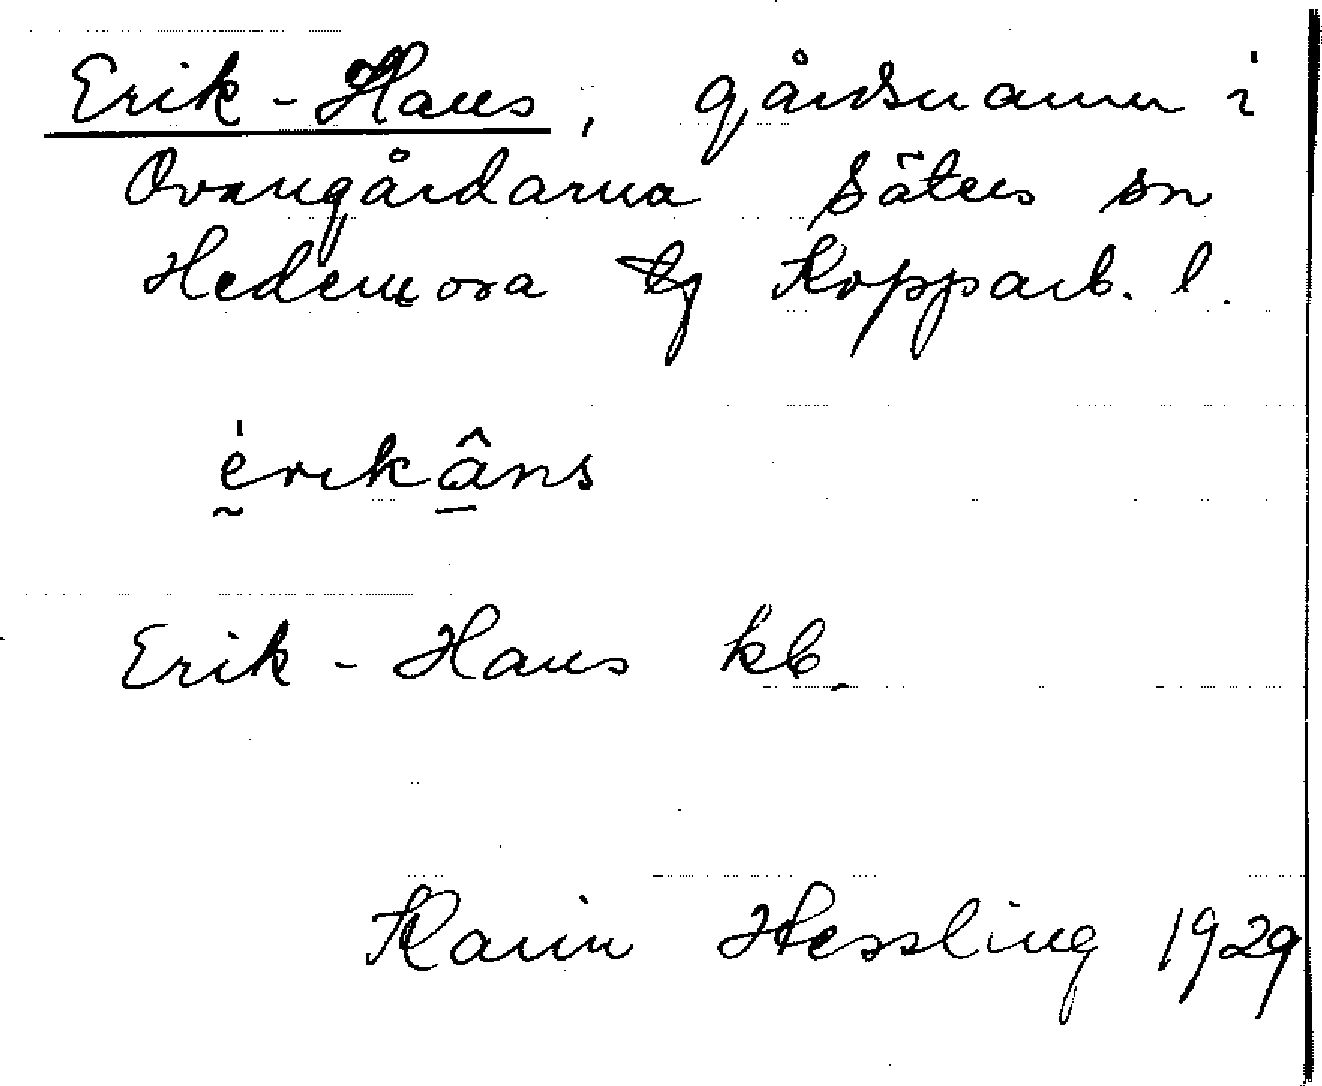 Erik-Hans, gårdsnamn i
Ovangårdarna Säters sn
Hedemora tg Kopparb. l.
ḛ̇rɩkâ̱ns
Erik-Hans kb.
Karin Hessling 1929